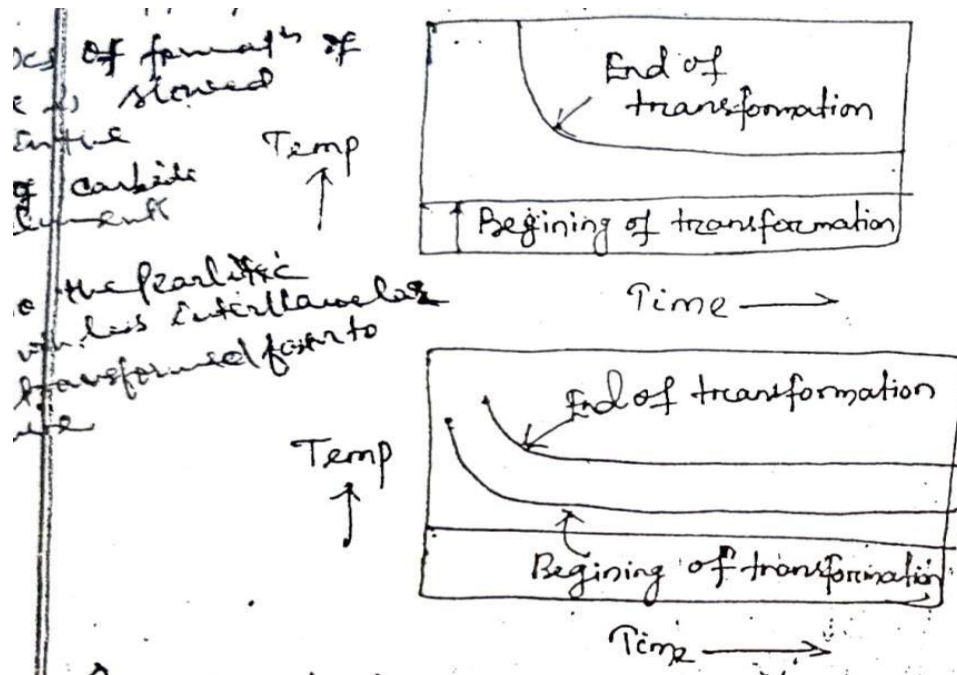 of formatn of
slowed
of carbide
the pearlitic
less interllamelar
transformed faster to
End of
transformation
Temp
Begining of transformation
Time
End of transformation
Temp
Begining of transformation
Time